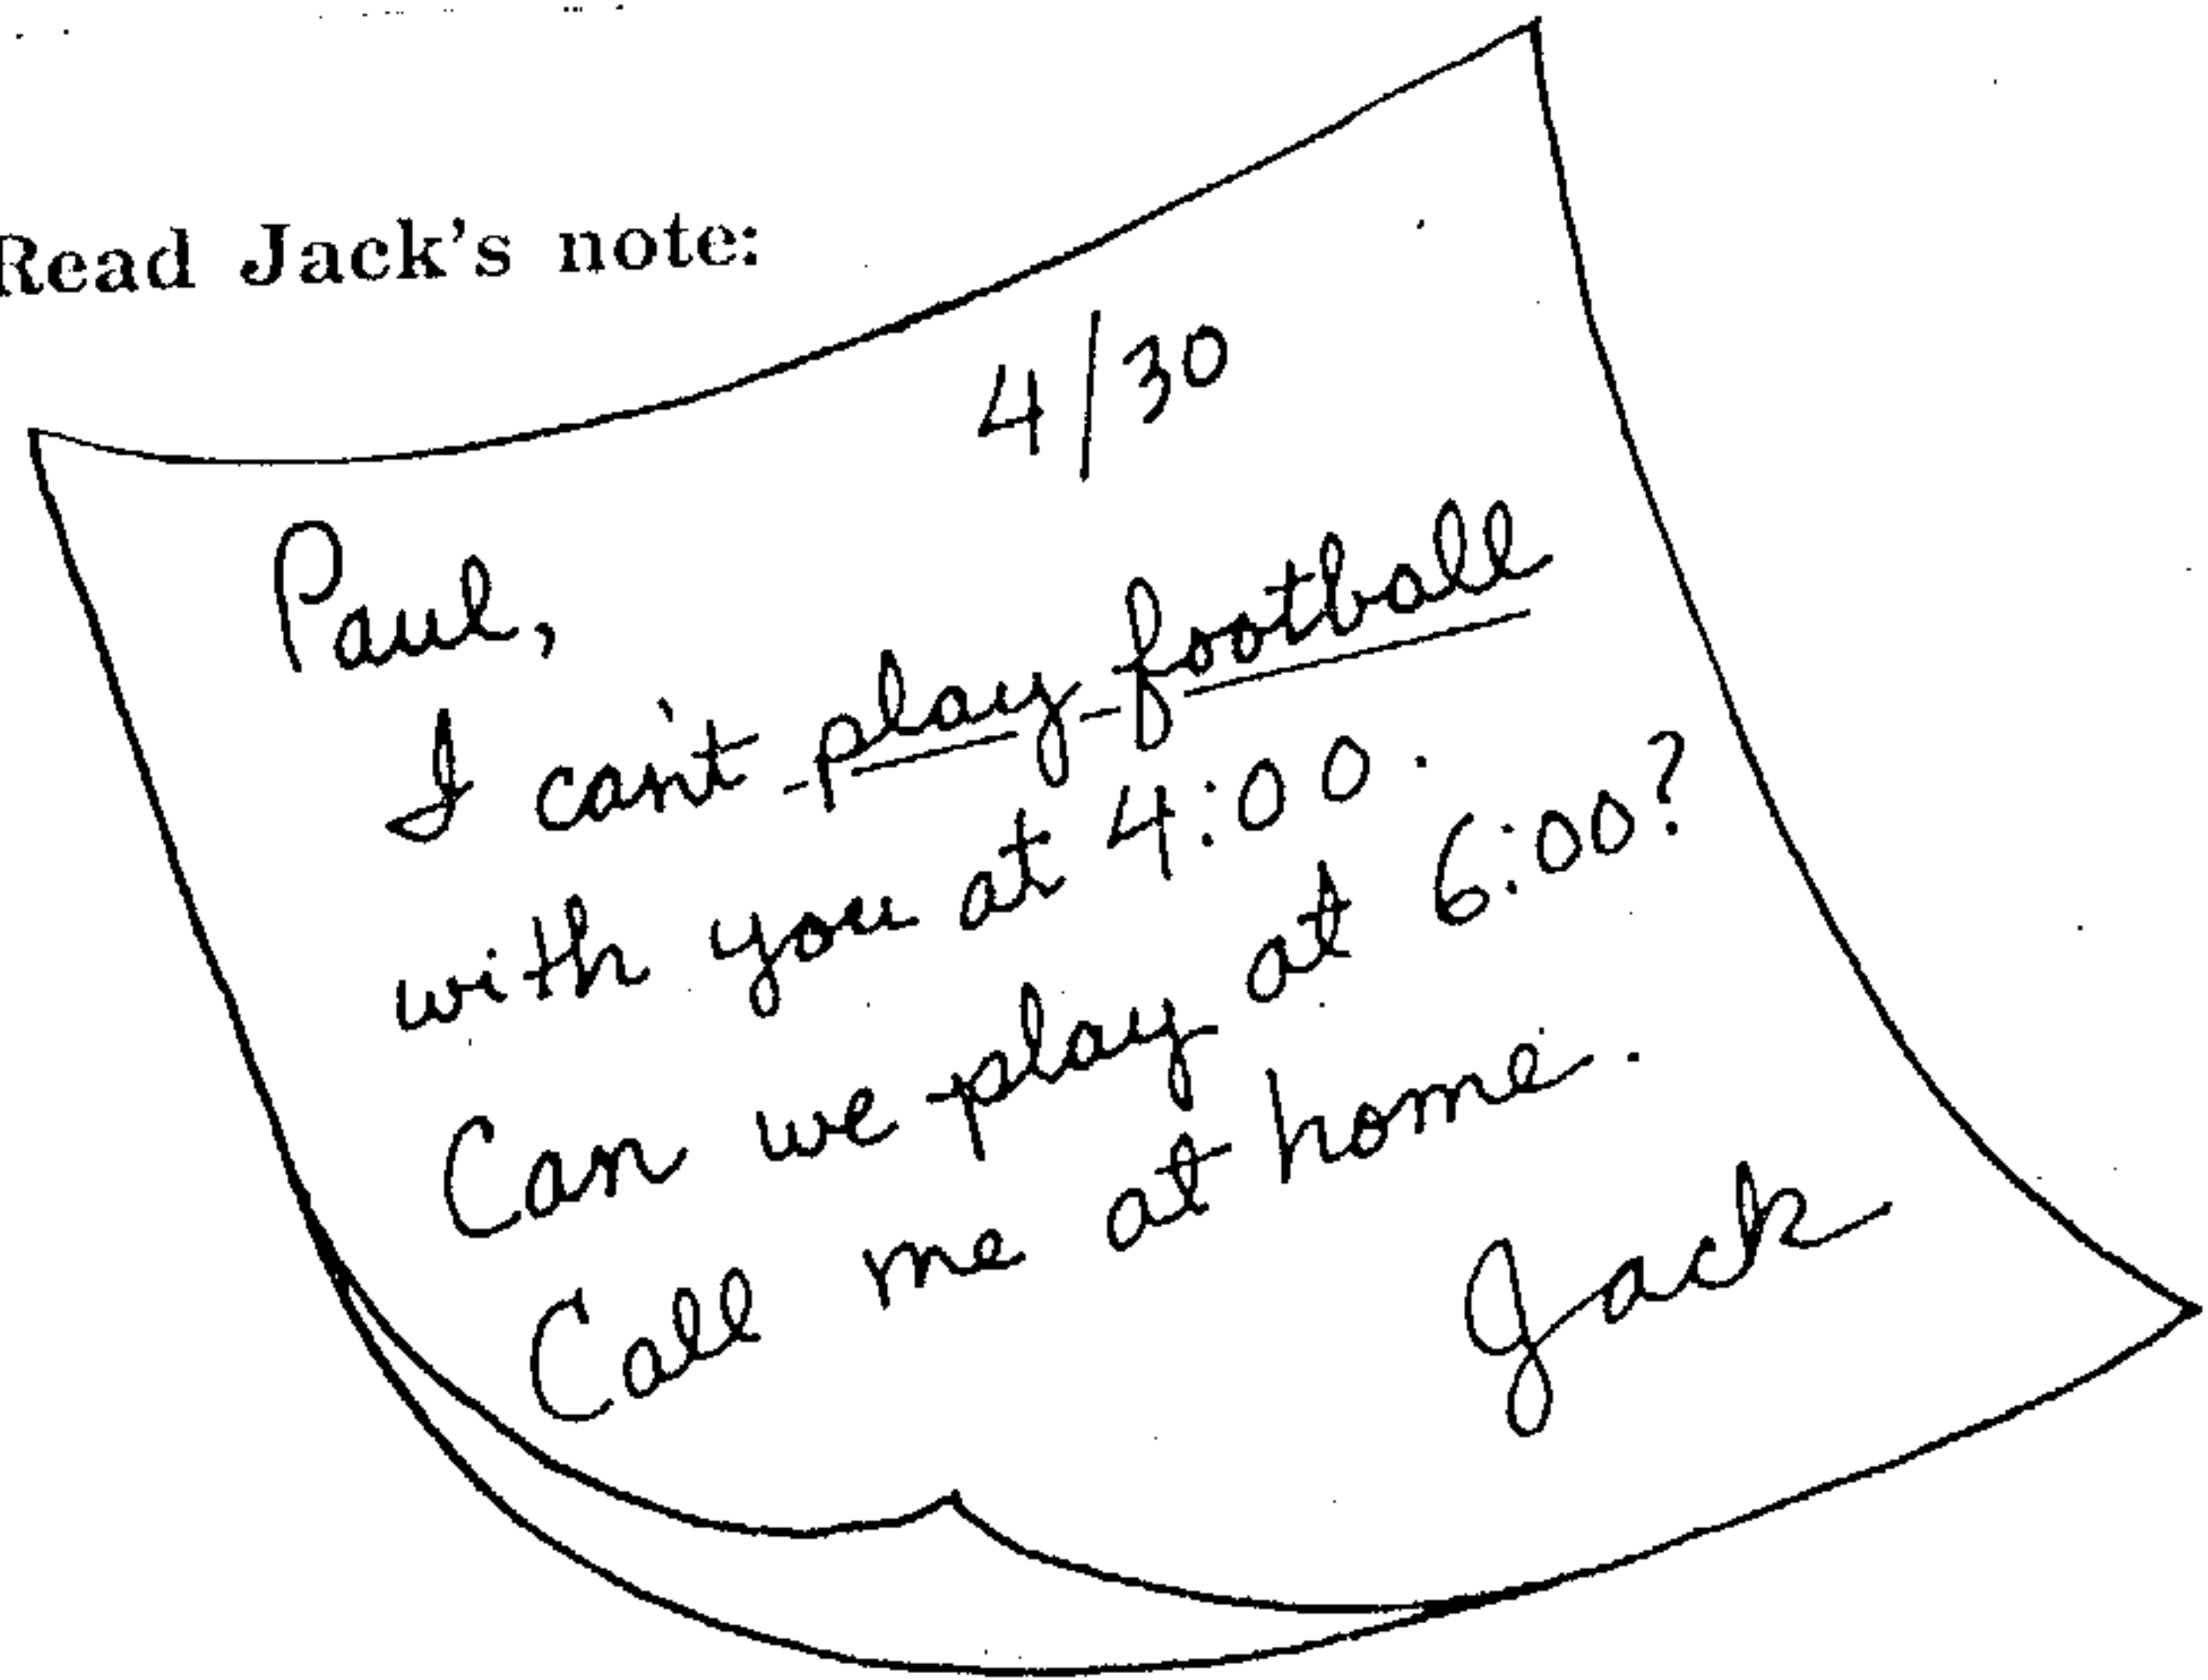 Read Jack's note:
4/30
Paul,
I can't play football
with you at 4:00.
Can we play at 6:00?
Call me at home.
Jack